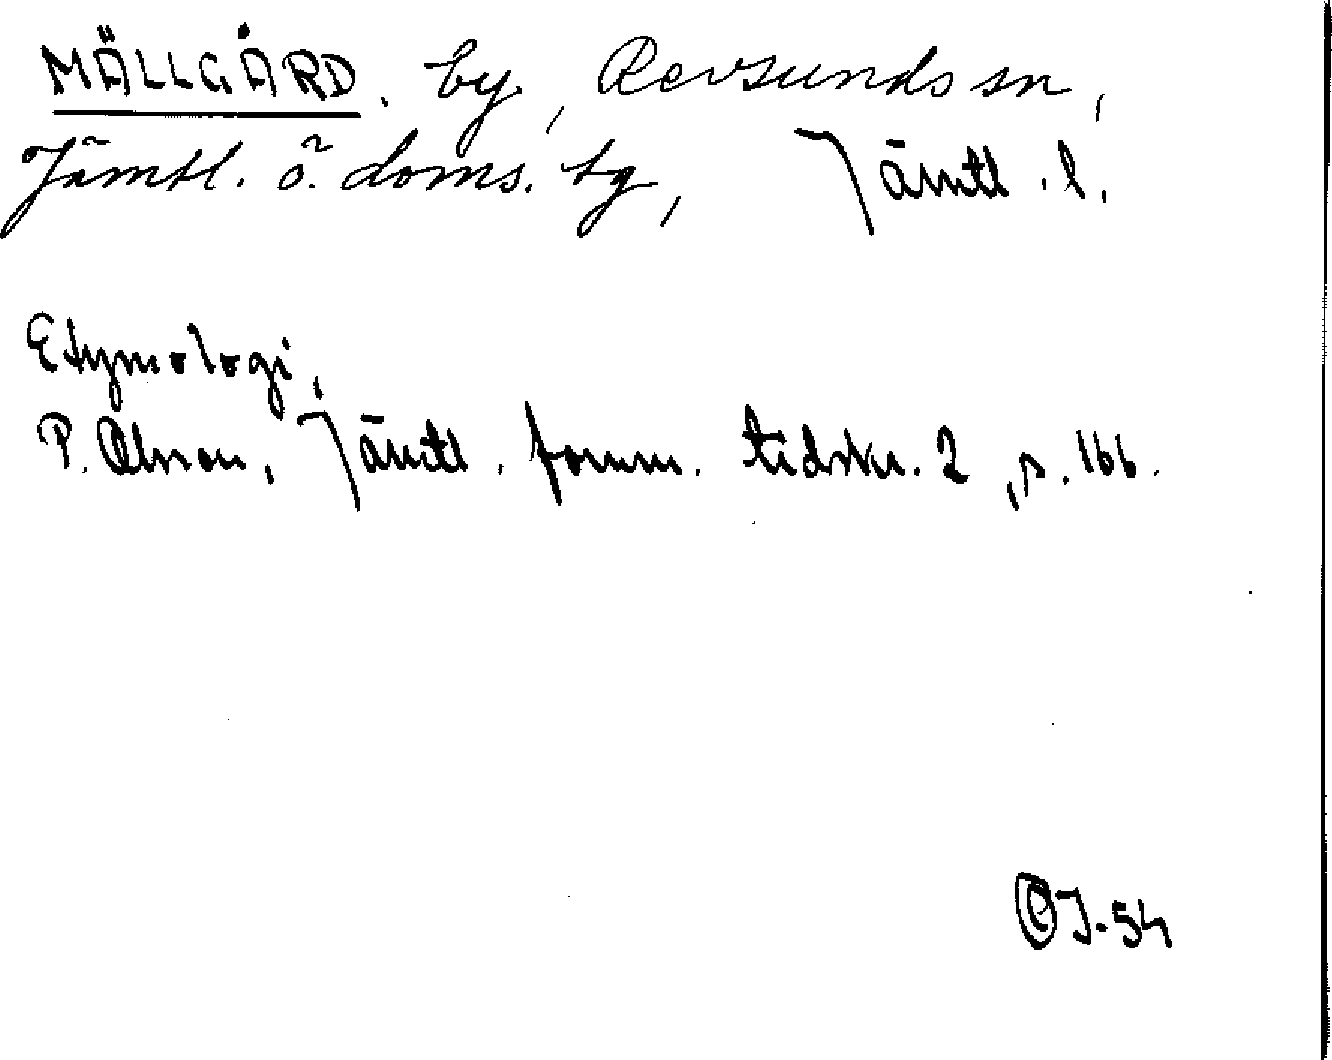 MÄLLGÅRD. by, Revsunds sn,
Jämtl. ö. doms. tg, Jämtl. l.
Etymologi,
P. Olsson, Jämtl. fornm. tidskr. 2, s. 166.
J-54